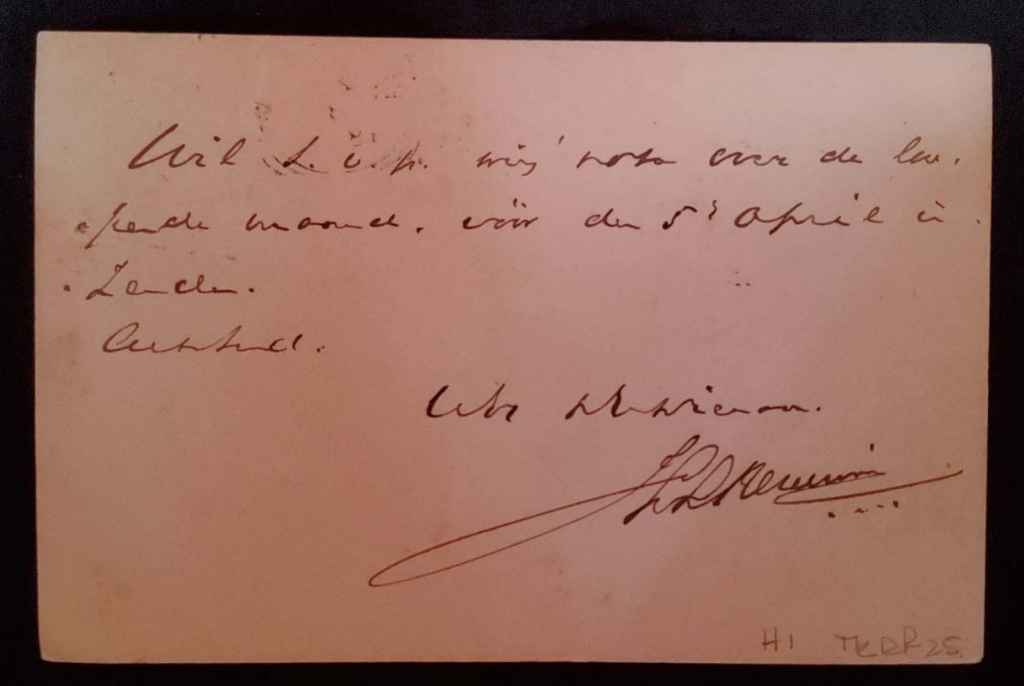 Wil s.v.p. mij nota over de loo-
pende maand. vóór den 5e April
zenden.
Achtend.
Uw
H1 TKDR25